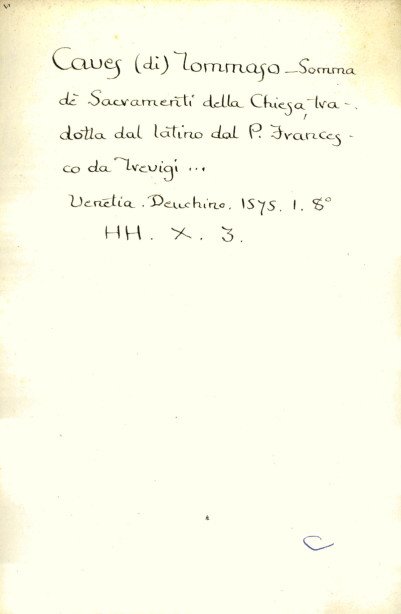 Caves (di) Tommaso - Somma
dè Sacramenti della Chiesa, tra-
dotta dal latino dal P. Frances-
co da Trevigi ...
Venetia. Deuchino. 1575. 1. 8°
HH. X. 3.
C